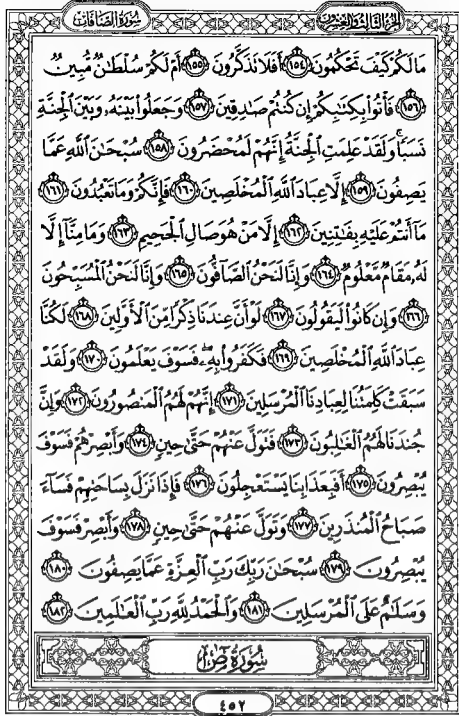 سُورَةُ الصَّافَّاتِ
الجُزْءُ الثَّالِثُ وَالعِشْرُونَ
مَا لَكُمْ كَيْفَ تَحْكُمُونَ ١٥٤ أَفَلَا تَذَكَّرُونَ ١٥٥ أَمْ لَكُمْ سُلْطَانٌ مُّبِينٌ
١٥٦ فَأْتُوا بِكِتَابِكُمْ إِن كُنتُمْ صَادِقِينَ ١٥٧ وَجَعَلُوا بَيْنَهُ وَبَيْنَ الْجِنَّةِ
نَسَبًا وَلَقَدْ عَلِمَتِ الْجِنَّةُ إِنَّهُمْ لَمُحْضَرُونَ ١٥٨ سُبْحَانَ اللَّهِ عَمَّا
يَصِفُونَ ١٥٩ إِلَّا عِبَادَ اللَّهِ الْمُخْلَصِينَ ١٦٠ فَإِنَّكُمْ وَمَا تَعْبُدُونَ ١٦١
مَا أَنتُمْ عَلَيْهِ بِفَاتِنِينَ ١٦٢ إِلَّا مَنْ هُوَ صَالِ الْجَحِيمِ ١٦٣ وَمَا مِنَّا إِلَّا
لَهُ مَقَامٌ مَّعْلُومٌ ١٦٤ وَإِنَّا لَنَحْنُ الصَّافُّونَ ١٦٥ وَإِنَّا لَنَحْنُ الْمُسَبِّحُونَ
١٦٦ وَإِن كَانُوا لَيَقُولُونَ ١٦٧ لَوْ أَنَّ عِندَنَا ذِكْرًا مِّنَ الْأَوَّلِينَ ١٦٨ لَكُنَّا
عِبَادَ اللَّهِ الْمُخْلَصِينَ ١٦٩ فَكَفَرُوا بِهِ فَسَوْفَ يَعْلَمُونَ ١٧٠ وَلَقَدْ
سَبَقَتْ كَلِمَتُنَا لِعِبَادِنَا الْمُرْسَلِينَ ١٧١ إِنَّهُمْ لَهُمُ الْمَنصُورُونَ ١٧٢ وَإِنَّ
جُندَنَا لَهُمُ الْغَالِبُونَ ١٧٣ فَتَوَلَّ عَنْهُمْ حَتَّى حِينٍ ١٧٤ وَأَبْصِرْهُمْ فَسَوْفَ
يُبْصِرُونَ ١٧٥ أَفَبِعَذَابِنَا يَسْتَعْجِلُونَ ١٧٦ فَإِذَا نَزَلَ بِسَاحَتِهِمْ فَسَاءَ
صَبَاحُ الْمُنذَرِينَ ١٧٧ وَتَوَلَّ عَنْهُمْ حَتَّى حِينٍ ١٧٨ وَأَبْصِرْ فَسَوْفَ
يُبْصِرُونَ ١٧٩ سُبْحَانَ رَبِّكَ رَبِّ الْعِزَّةِ عَمَّا يَصِفُونَ ١٨٠
وَسَلَامٌ عَلَى الْمُرْسَلِينَ ١٨١ وَالْحَمْدُ لِلَّهِ رَبِّ الْعَالَمِينَ ١٨٢
سُورَةُ ص
٤٥٢